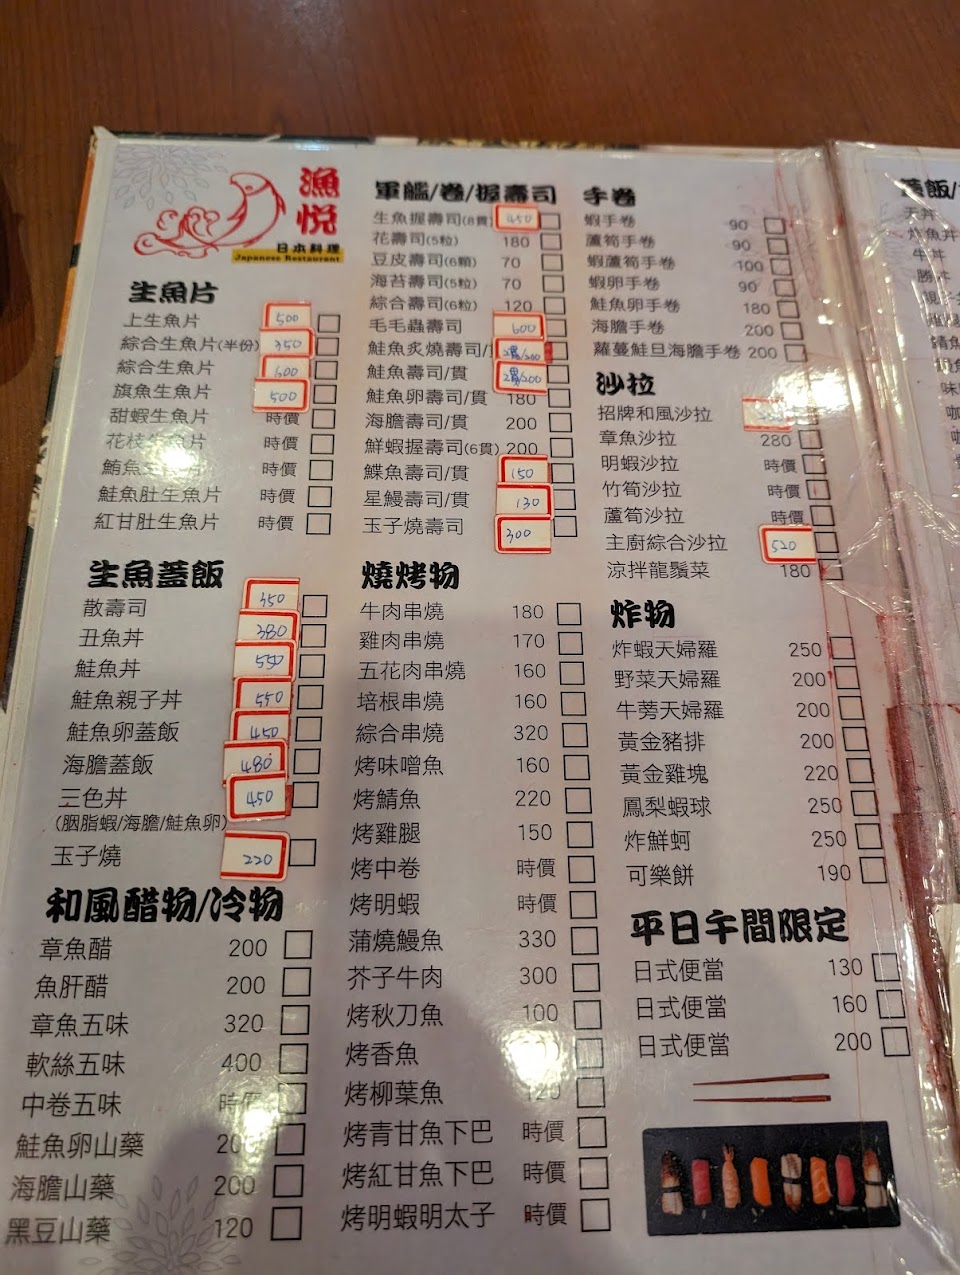 漁悅
日本料理
Japanese Restaurant
生魚片
上生魚片 500
綜合生魚片(半份) 350
綜合生魚片 600
旗魚生魚片 500
甜蝦生魚片 時價
花枝生魚片 時價
鮪魚生魚片 時價
鮭魚肚生魚片 時價
紅甘肚生魚片 時價
生魚蓋飯
散壽司 350
丑魚丼 380
鮭魚丼 550
鮭魚親子丼 550
鮭魚卵蓋飯 450
海膽蓋飯 480
三色丼 450
(胭脂蝦/海膽/鮭魚卵)
玉子燒 220
和風醋物/冷物
章魚醋 200
魚肝醋 200
章魚五味 320
軟絲五味 400
中卷五味 時價
鮭魚卵山藥 200
海膽山藥 200
黑豆山藥 120
軍艦/卷/握壽司
生魚握壽司(8貫) 450
花壽司(5粒) 180
豆皮壽司(6顆) 70
海苔壽司(5粒) 70
綜合壽司(6粒) 120
毛毛蟲壽司 600
鮭魚炙燒壽司/ 2貫/200
鮭魚壽司/貫 2貫/200
鮭魚卵壽司/貫 180
海膽壽司/貫 200
鮮蝦握壽司(6貫) 200
鰈魚壽司/貫 150
星鰻壽司/貫 130
玉子燒壽司 300
燒烤物
牛肉串燒 180
雞肉串燒 170
五花肉串燒 160
培根串燒 160
綜合串燒 320
烤味噌魚 160
烤鯖魚 220
烤雞腿 150
烤中卷 時價
烤明蝦 時價
蒲燒鰻魚 330
芥子牛肉 300
烤秋刀魚 100
烤香魚
烤柳葉魚 120
烤青甘魚下巴 時價
烤紅甘魚下巴 時價
烤明蝦明太子 時價
手卷
蝦手卷 90
蘆筍手卷 90
蝦蘆筍手卷 100
蝦卵手卷 90
鮭魚卵手卷 180
海膽手卷 200
蘿蔓鮭旦海膽手卷 200
沙拉
招牌和風沙拉
章魚沙拉 280
明蝦沙拉 時價
竹筍沙拉 時價
蘆筍沙拉 時價
主廚綜合沙拉 520
涼拌龍鬚菜 180
炸物
炸蝦天婦羅 250
野菜天婦羅 200
牛蒡天婦羅 200
黃金豬排 200
黃金雞塊 220
鳳梨蝦球 250
炸鮮蚵 250
可樂餅 190
平日午間限定
日式便當 130
日式便當 160
日式便當 200
蓋飯/
天丼
炸魚丼
牛丼
勝丼